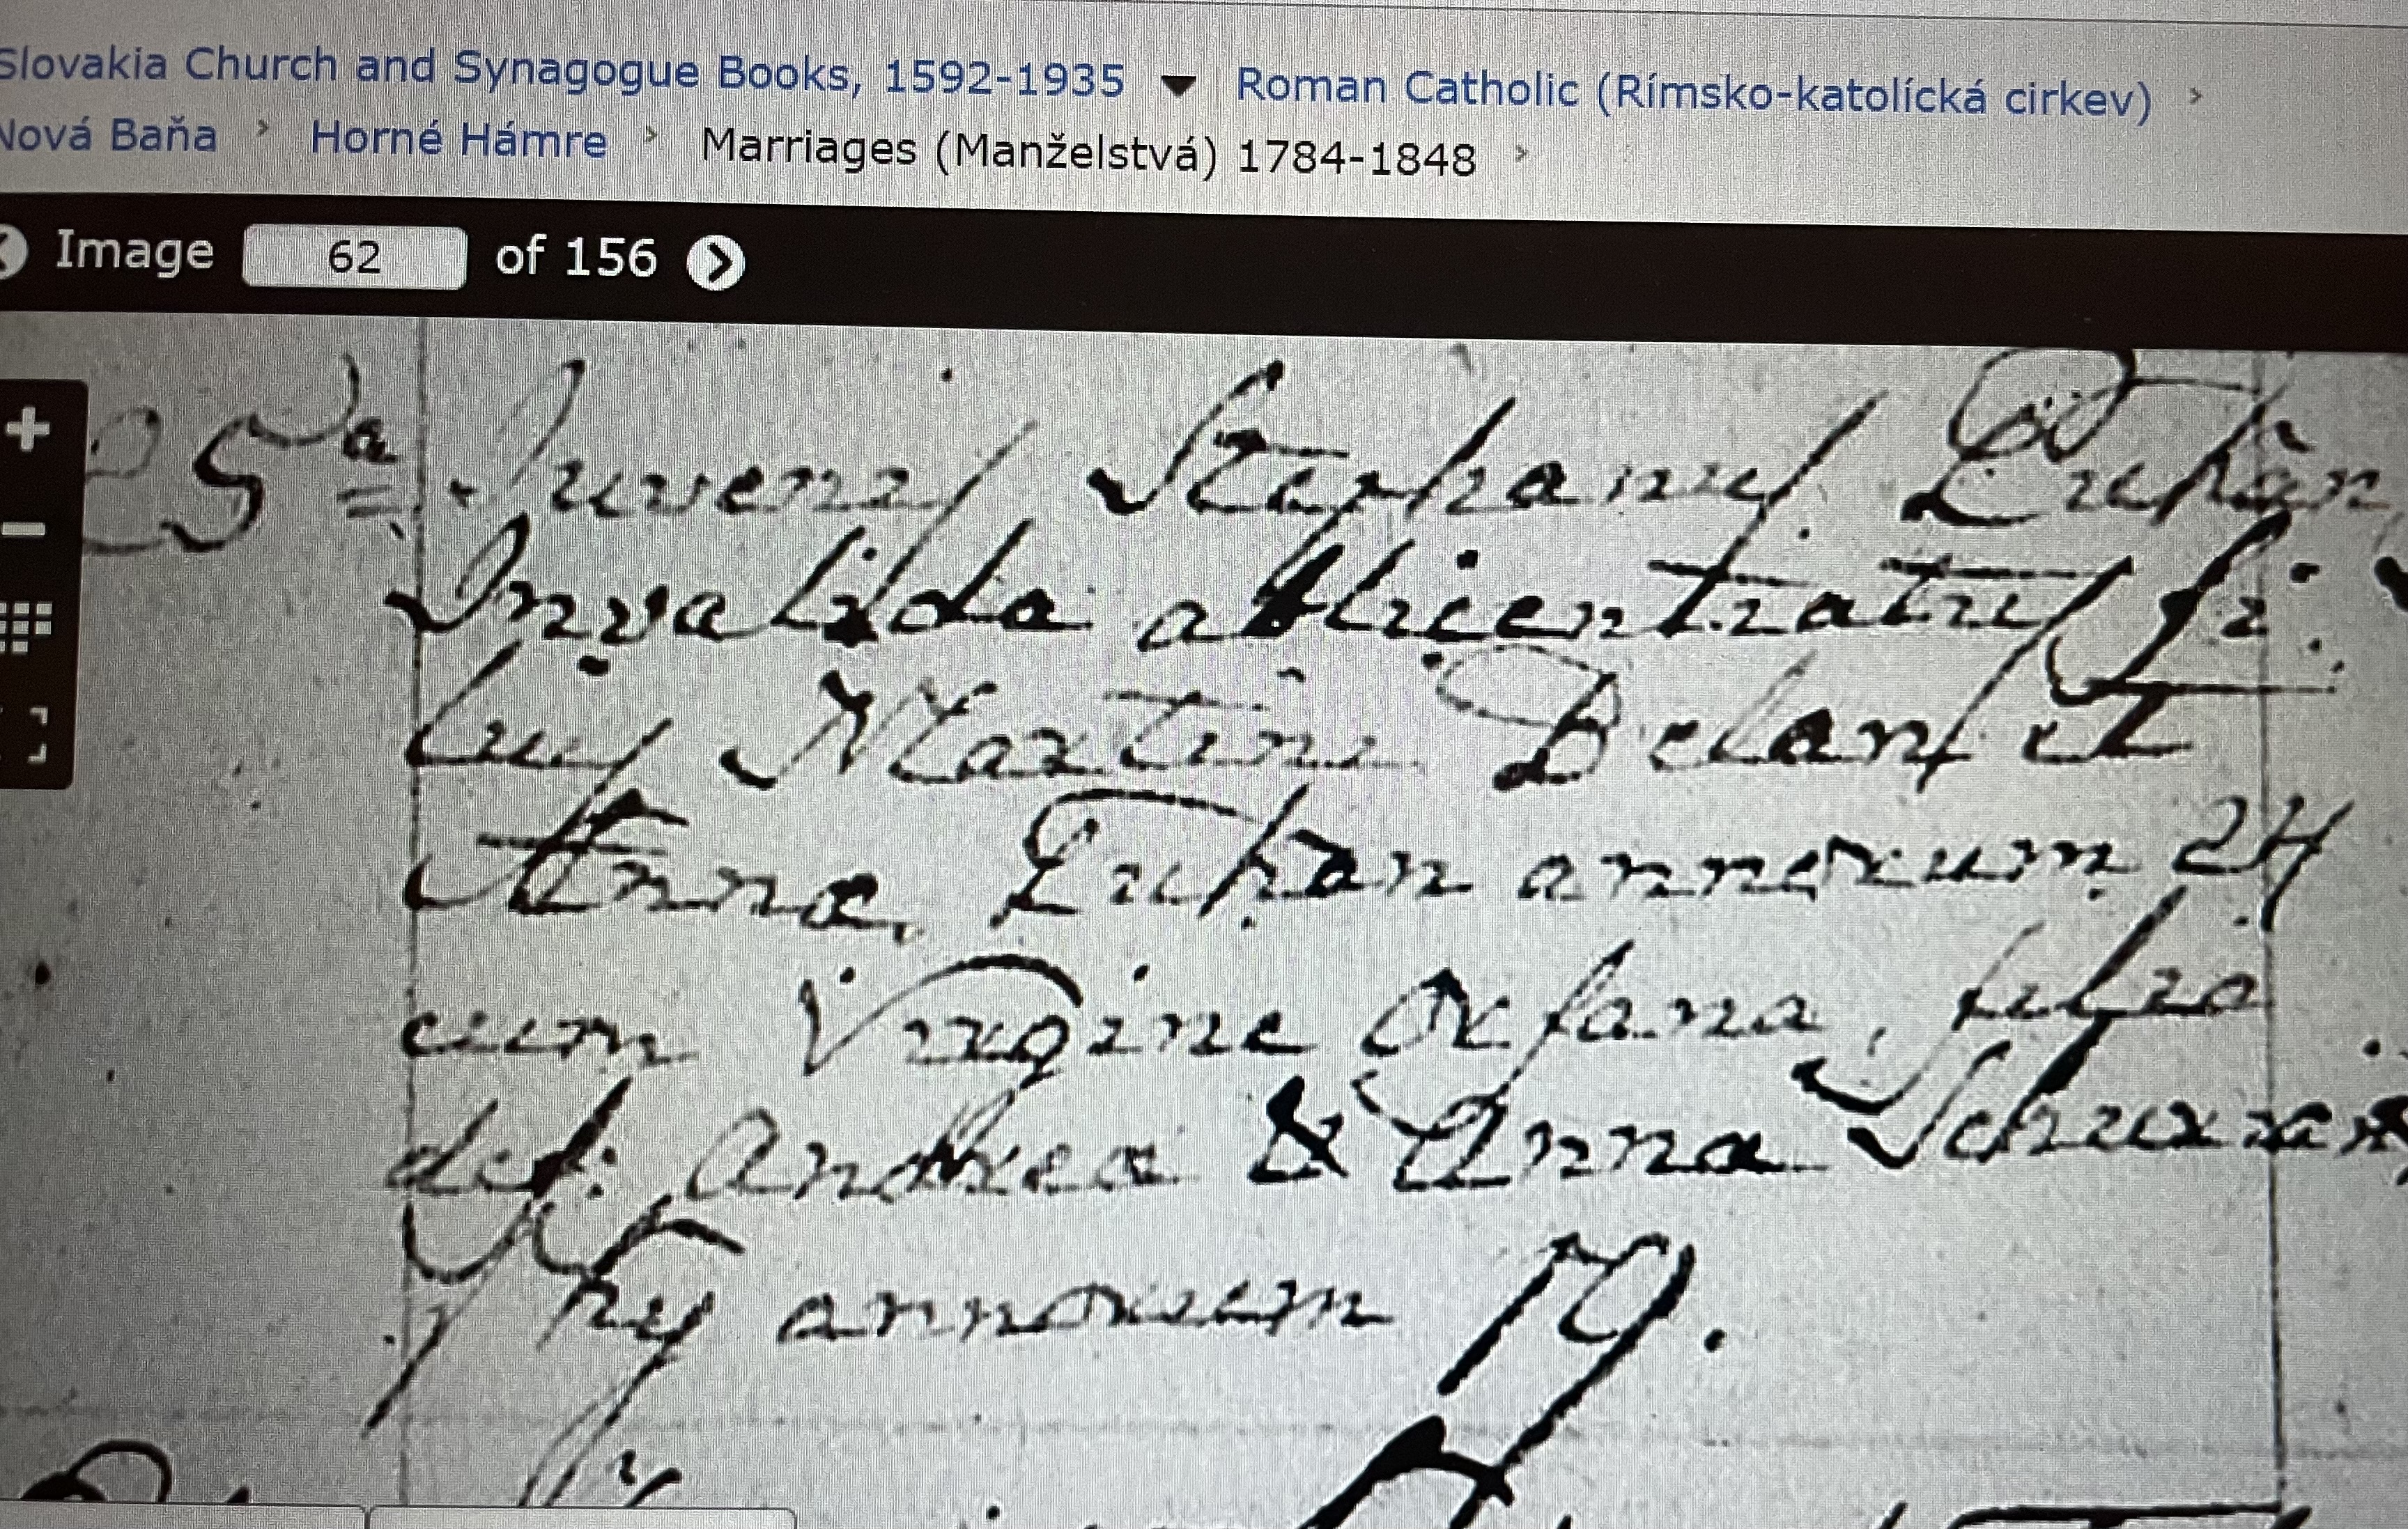 Slovakia Church and Synagogue Books, 1592-1935 Roman Catholic (Rímsko-katolícká cirkev)
Nová Baňa Horné Hámre Marriages (Manželstvá) 1784-1848
Image 62 of 156
25a Juvenis Stephanus
Invalida fi:
lius Martini Belan et
Anna annorum 24
cum Virgine Orfana, filia
def: Andrea & Anna
annorum 19.